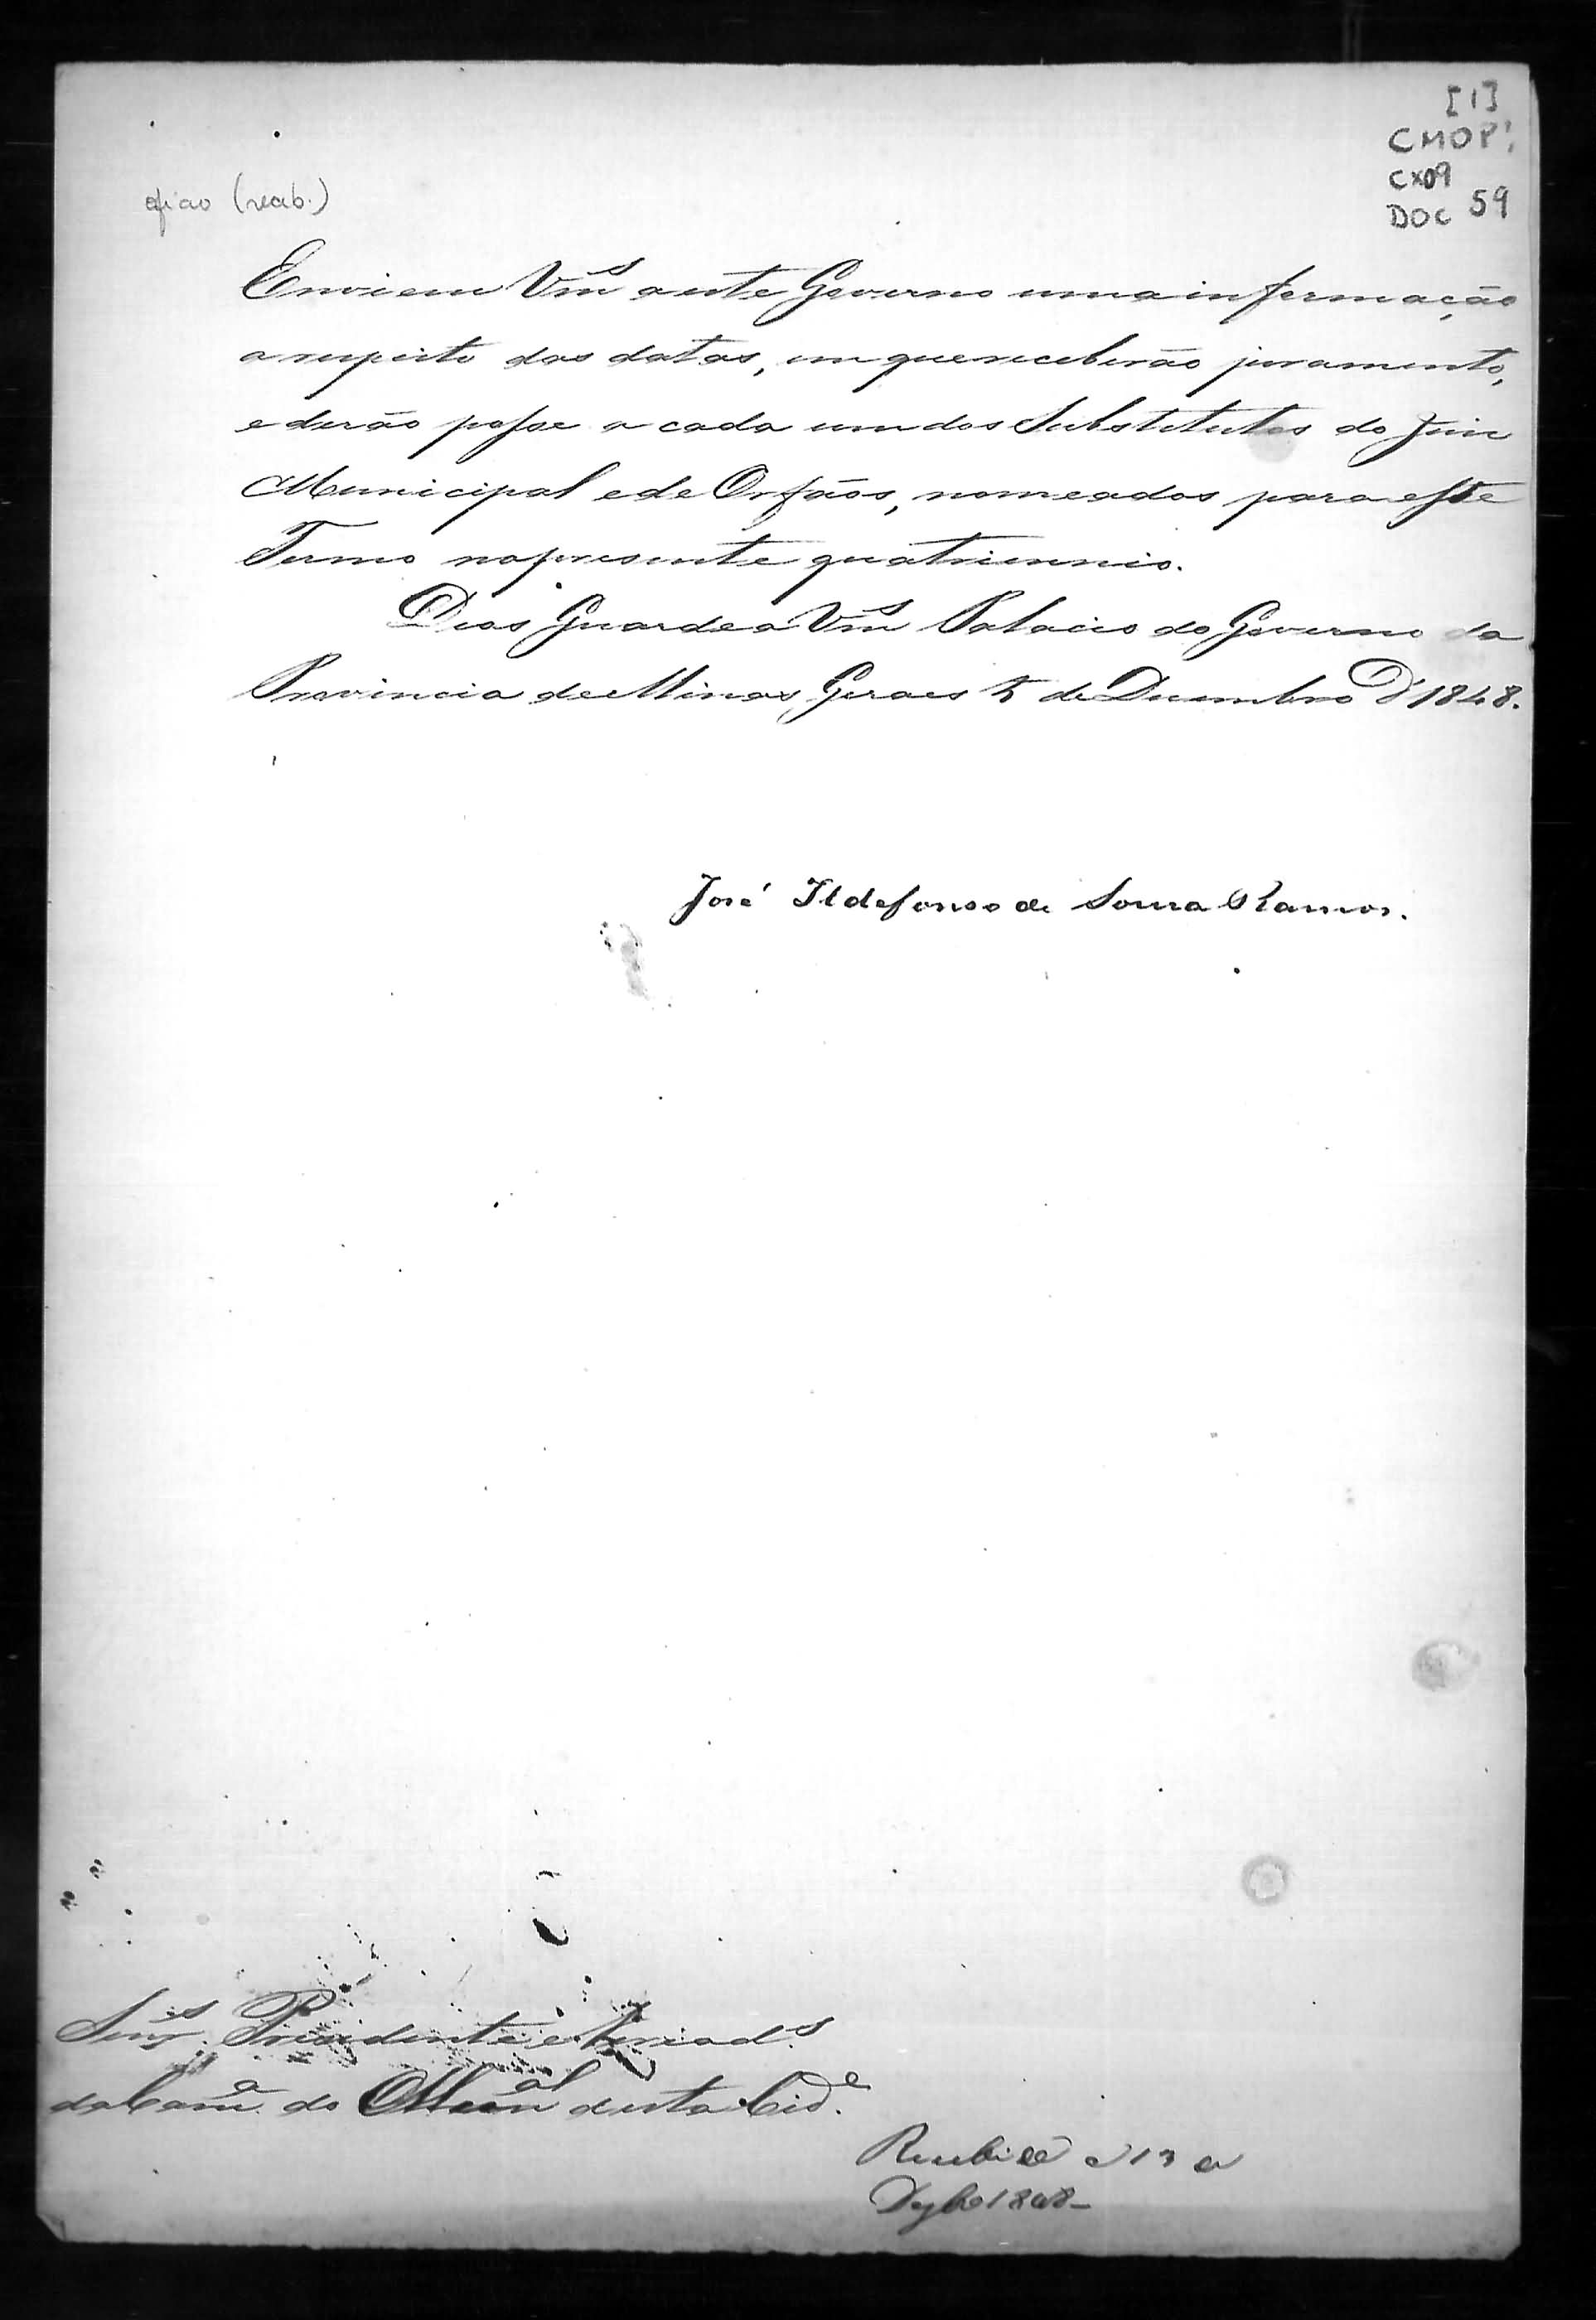 [1]
CMOP
CX09
DOC 59
oficio (receb.)
Enviem Vm.ces a este Governo uma informação
a respeito das datas, em que receberão juramento,
e derão posse a cada um dos Substitutos do Juiz
Municipal e de Orfãos, nomeados para esse
Termo no presente quatriennio.
Deos Guarde a Vm.ces Palacio do Governo da
Provincia de Minas Geraes 5 de Dezembro d'1848.
José Ildefonso de Souza Ramos.
Snr.es Presidente e Veread.s
da Cam.a do Mun.al desta Cid.e
1848